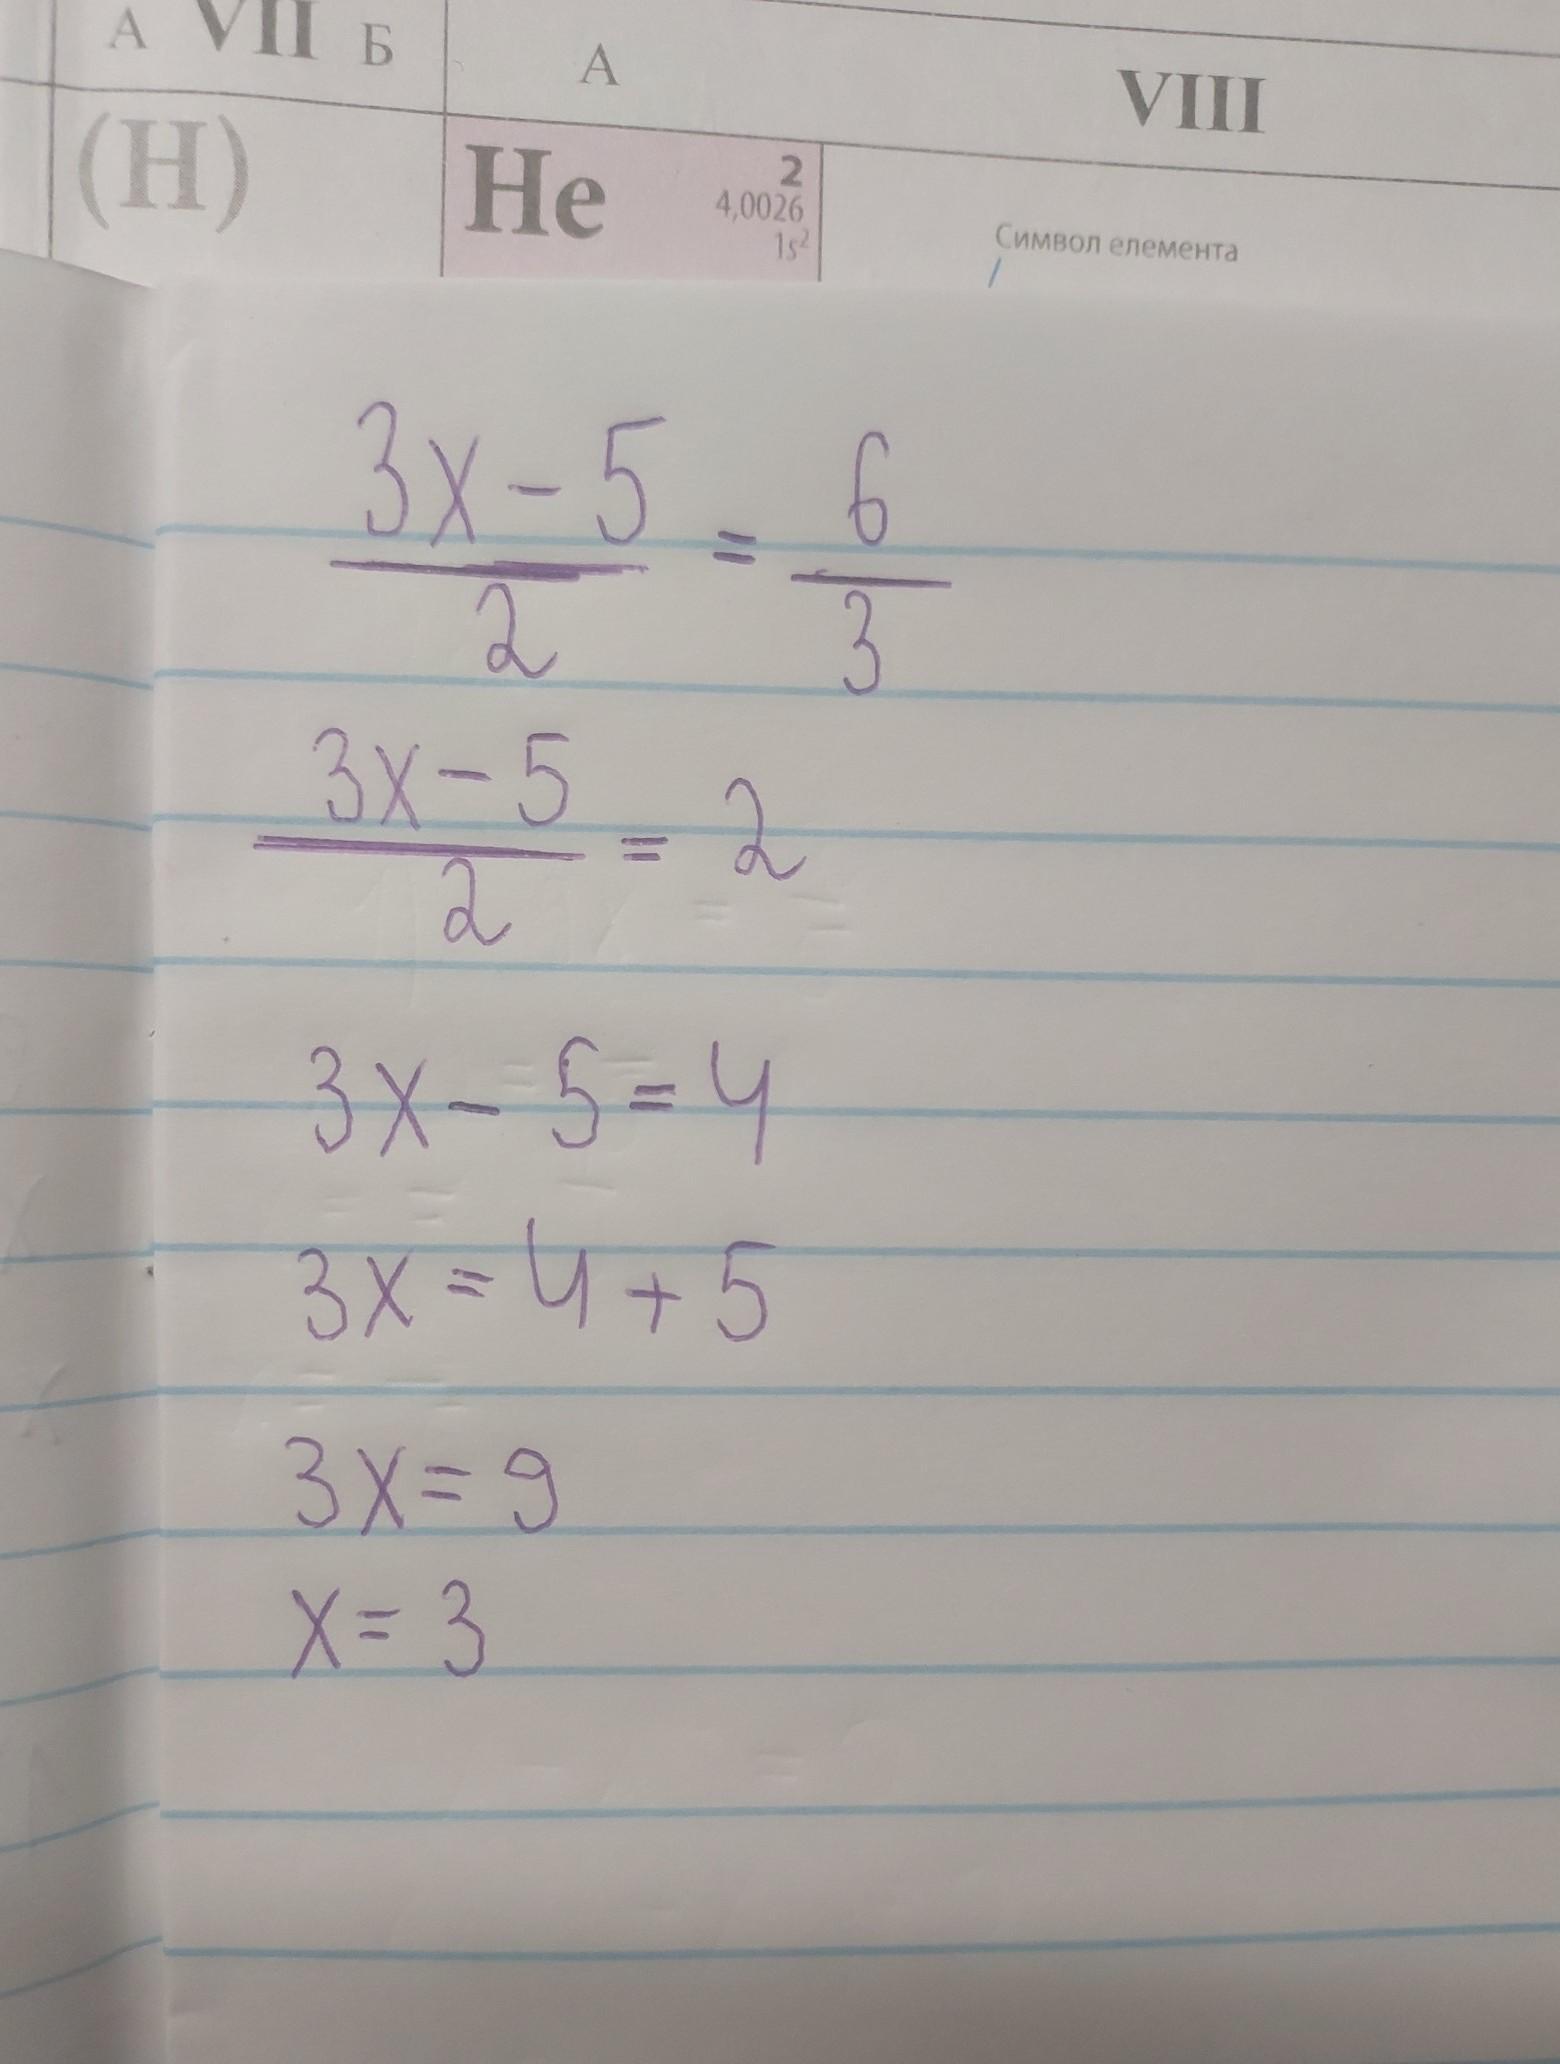 А VII Б А VIII
(H) He 2
4,0026
1s²
Символ елемента
3x - 5 / 2 = 6 / 3
3x - 5 / 2 = 2
3x - 5 = 4
3x = 4 + 5
3x = 9
x = 3